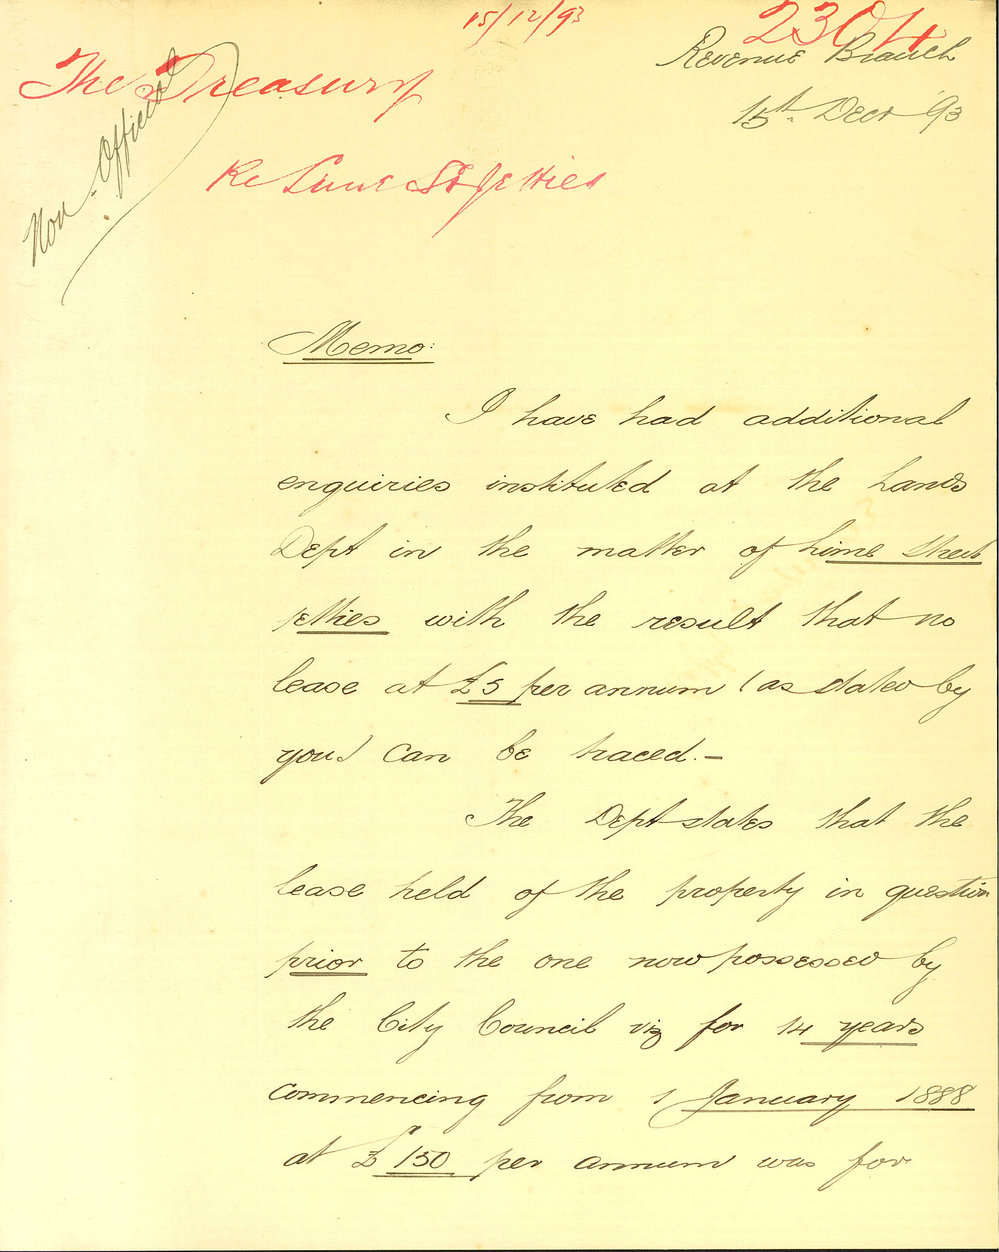 15/12/93
2304
The Treasury
Revenue Branch
Non-Official
15th Decr 93
Re Lime St Jetties
Memo:
I have had additional
enquiries instituted at the Lands
Dept in the matter of Lime Street
jetties with the result that no
lease at £5 per annum (as stated by
you) can be traced.—
The Dept states that the
lease held of the property in question
prior to the one now possessed by
the City Council viz for 14 years
commencing from 1 January 1888
at £150 per annum was for